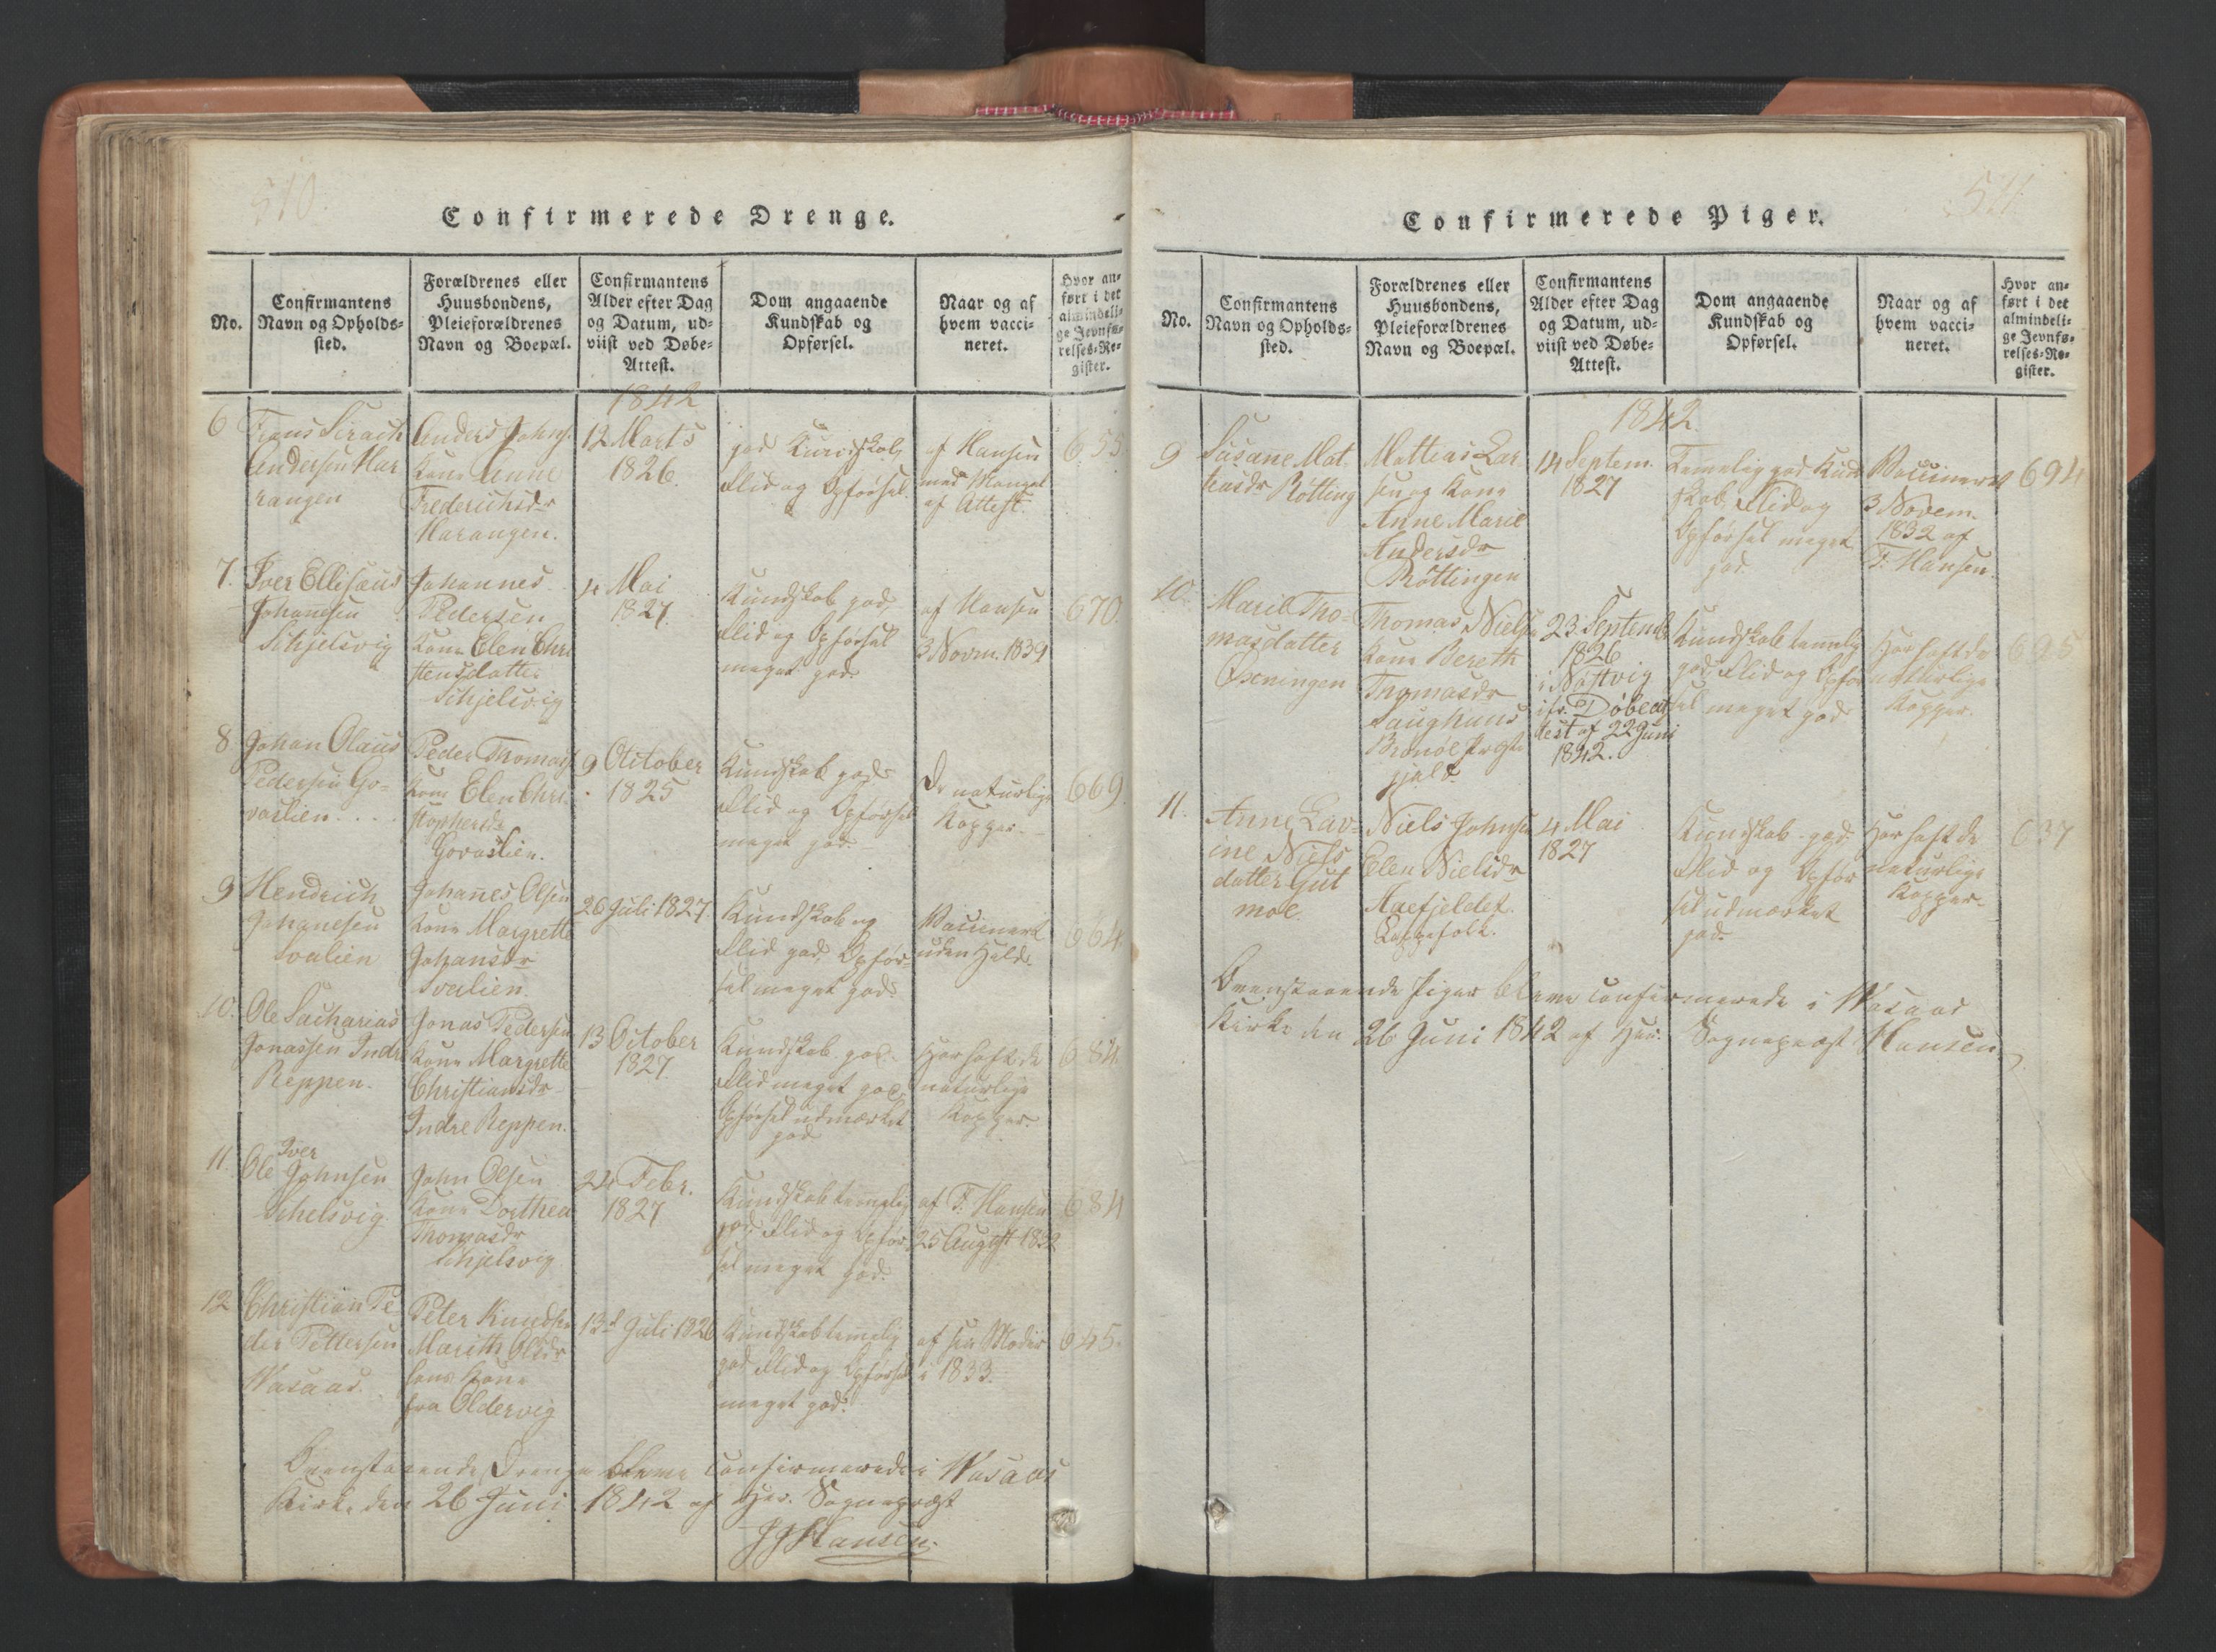 510.
Confirmerede Drenge.
No.
Confirmantens
Navn og Opholds-
sted.
Forældrenes eller
Huusbondens,
Pleieforældrenes
Navn og Boepæl.
Confirmantens
Alder efter Dag
og Datum, ud-
viist ved Døbe-
Attest.
Dom angaaende
Kundskab og
Opførsel.
Naar og af
hvem vacci-
neret.
Hvor an-
ført i det
almindeli-
ge Jevnfø-
relses-Re-
gister.
1842
6
Andersen Har
rangen
Anders Johns.
Kone Anne
Frederichsdr
Harangen.
12 Marts
1826.
god Kundskab,
Flid og Opførsel.
af Hansen
med Mangel
af Attest.
655.
7.
Iver Ellisæus
Johansen
Schjelsvig
Johannes
Pedersen
Kone Elen Chri
stensdatter
Schjelsvig
4 Mai
1827.
Kundskab god,
Flid og Opførsel
meget god.
af Hansen
3 Novm. 1839
670.
8
Johan Olaus
Pedersen Go-
vaslien. . . .
Peder Thomas.
Kone Elen Chri-
stophersdr
Govaslien.
9 October
1825
Kundskab god
Flid og Opførsel
meget god.
De naturlige
Kopper. -
669.
9
Hendrich
Johanesen
Svalien
Johanes Olsen
Kone Margrette
Johansdr
Svalien.
26 Juli 1827.
Kundskab og
Flid god, Opfør-
sel meget god.
Vaccineret
uden Held.
664.
10.
Ole Sacharias
Jonassen Indre
Reppen.
Jonas Pedersen
Kone Margrette
Christiansdr
Indre Reppen.
13 October
1827.
Kundskab god.
Flid meget god,
Opførsel udmærket
god
Har haft de
naturlige
Kopper.
684.
11.
Iver
Ole Johnsen
Schelsvig.
John Olsen
Kone Dorthea
Thomasdr
Schjelsvig
24 Febr.
1827
Kundskab temelig
god, Flid og Opfør
sel meget god.
af F. Hansen
25 August 1832
684
12
Christian Pe
der Pettersen
Wasaas.
Peter Knudsen
Marith Olsdr
hans Kone
fra Oldervig
13d Juli 1826
Kundskab temelig
god Flid og Opførsel
meget god.
af sin Moder
i 1833.
645.
Ovenstaaende Drenge bleve Confirmerede i Wasaas
Kirke den 26 Juni 1842 af Hr. Sognepræst
JJHansen.
511.
Confirmerede Piger.
No.
Confirmantens
Navn og Opholds-
sted.
Forældrenes eller
Huusbondens,
Pleieforældrenes
Navn og Boepæl.
Confirmantens
Alder efter Dag
og Datum, ud-
viist ved Døbe-
Attest.
Dom angaaende
Kundskab og
Opførsel.
Naar og af
hvem vacci-
neret.
Hvor an-
ført i det
almindeli-
ge Jevnfø-
relses-Re-
gister.
1842.
9
Susane Mat
teasdr Røtting
Matteas Lar
sen og Kone
Anne Marie
Andersdr
Røttingen
14 Septem.
1827
Temelig god Kund
skab. Flid og
Opførsel meget
god.
Vaccineret
3 Novem.
1832 af
F. Hansen.
694
10.
Marie Tho-
masdatter
Øxeningen
Thomas Nielsen
Kone Bereth
Thomasdr
Brønøe Præste
gjæld.
23 Septemb.
1826
i
Døbeat
test af 22 Juni
1842.
Kundskab temelig
god, Flid og Opfør
sel meget god
Har haft de
naturlige
Kopper.
695
11.
Anne Lav-
ine Niels
datter Gut
moe.
Niels Johnsen
Elen Nielsdr
Aaefjeldet.
Lappefolk.
4 Mai
1827
Kundskab god.
Flid og Opfør
sel udmærket
god.
Har haft de
naturlige
Kopper.
637
Ovenstaaende Piger bleve Confirmerede i Wasaas
Kirke den 26 Juni 1842 af Hr. Sognepræst Hansen